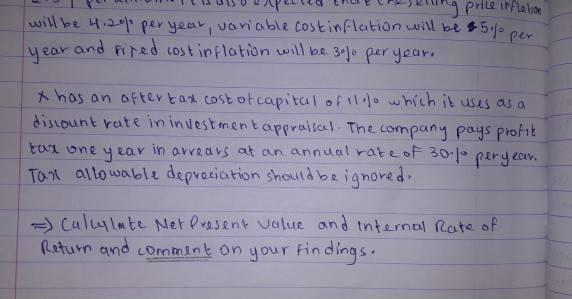 selling price inflation
will be 4.2% per year, variable cost inflation will be 5% per
year and fixed cost inflation will be 3% per year.
X has an after tax cost of capital of 11% which it uses as a
discount rate in investment appraisal. The company pays profit
tax one year in arrears at an annual rate of 30% per year.
Tax allowable depreciation should be ignored.
=> Calculate Net Present value and internal Rate of
Return and comment on your findings.